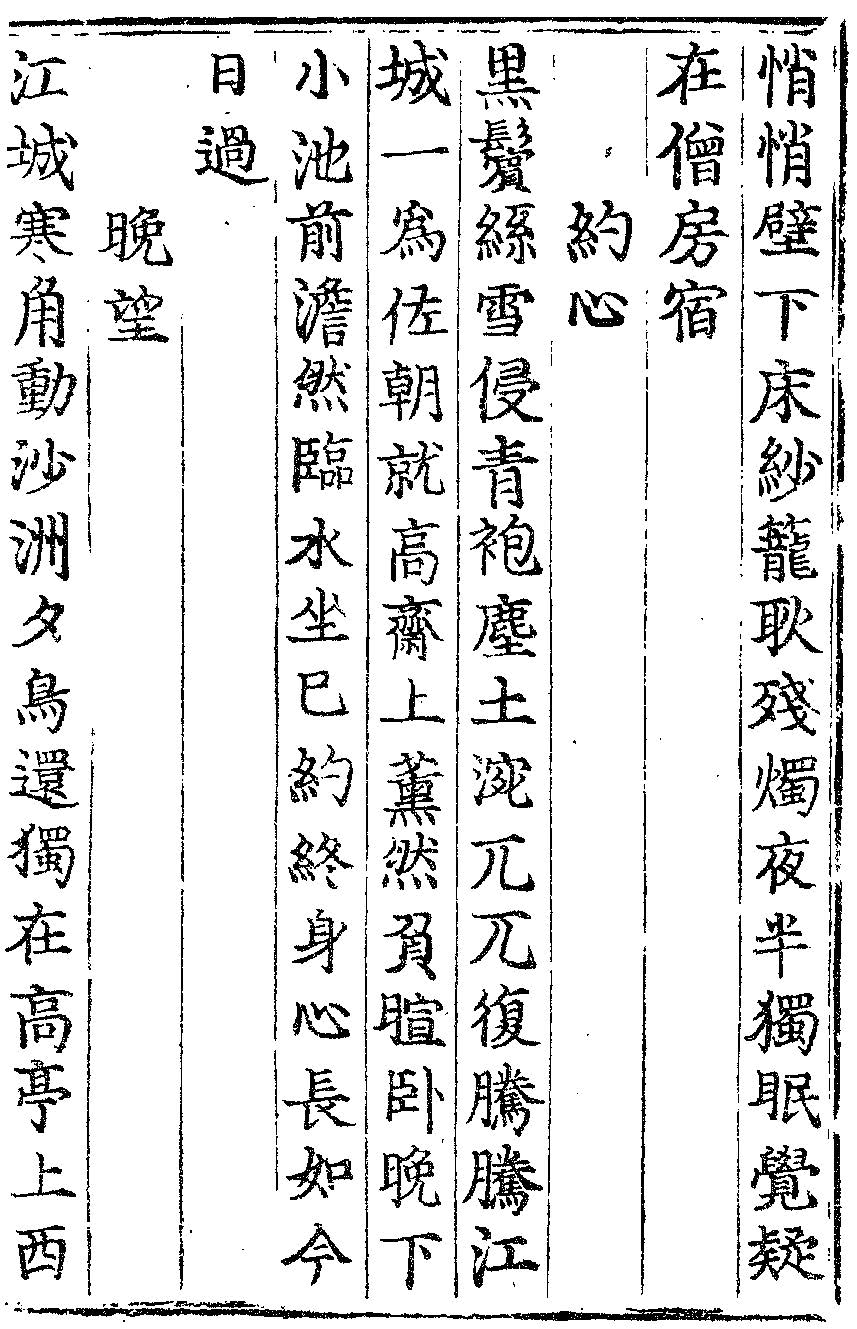 悄悄壁下床紗籠耿殘燭夜半獨眠覺疑
在僧房宿
約心
黒鬢絲雪侵青袍塵土涴兀兀復騰騰江
城一爲佐朝就高齋上薫然負暄卧晚下
小池前澹然臨水坐巳約終身心長如今
日過
晚望
江城寒角動沙洲夕鳥還獨在高亭上西